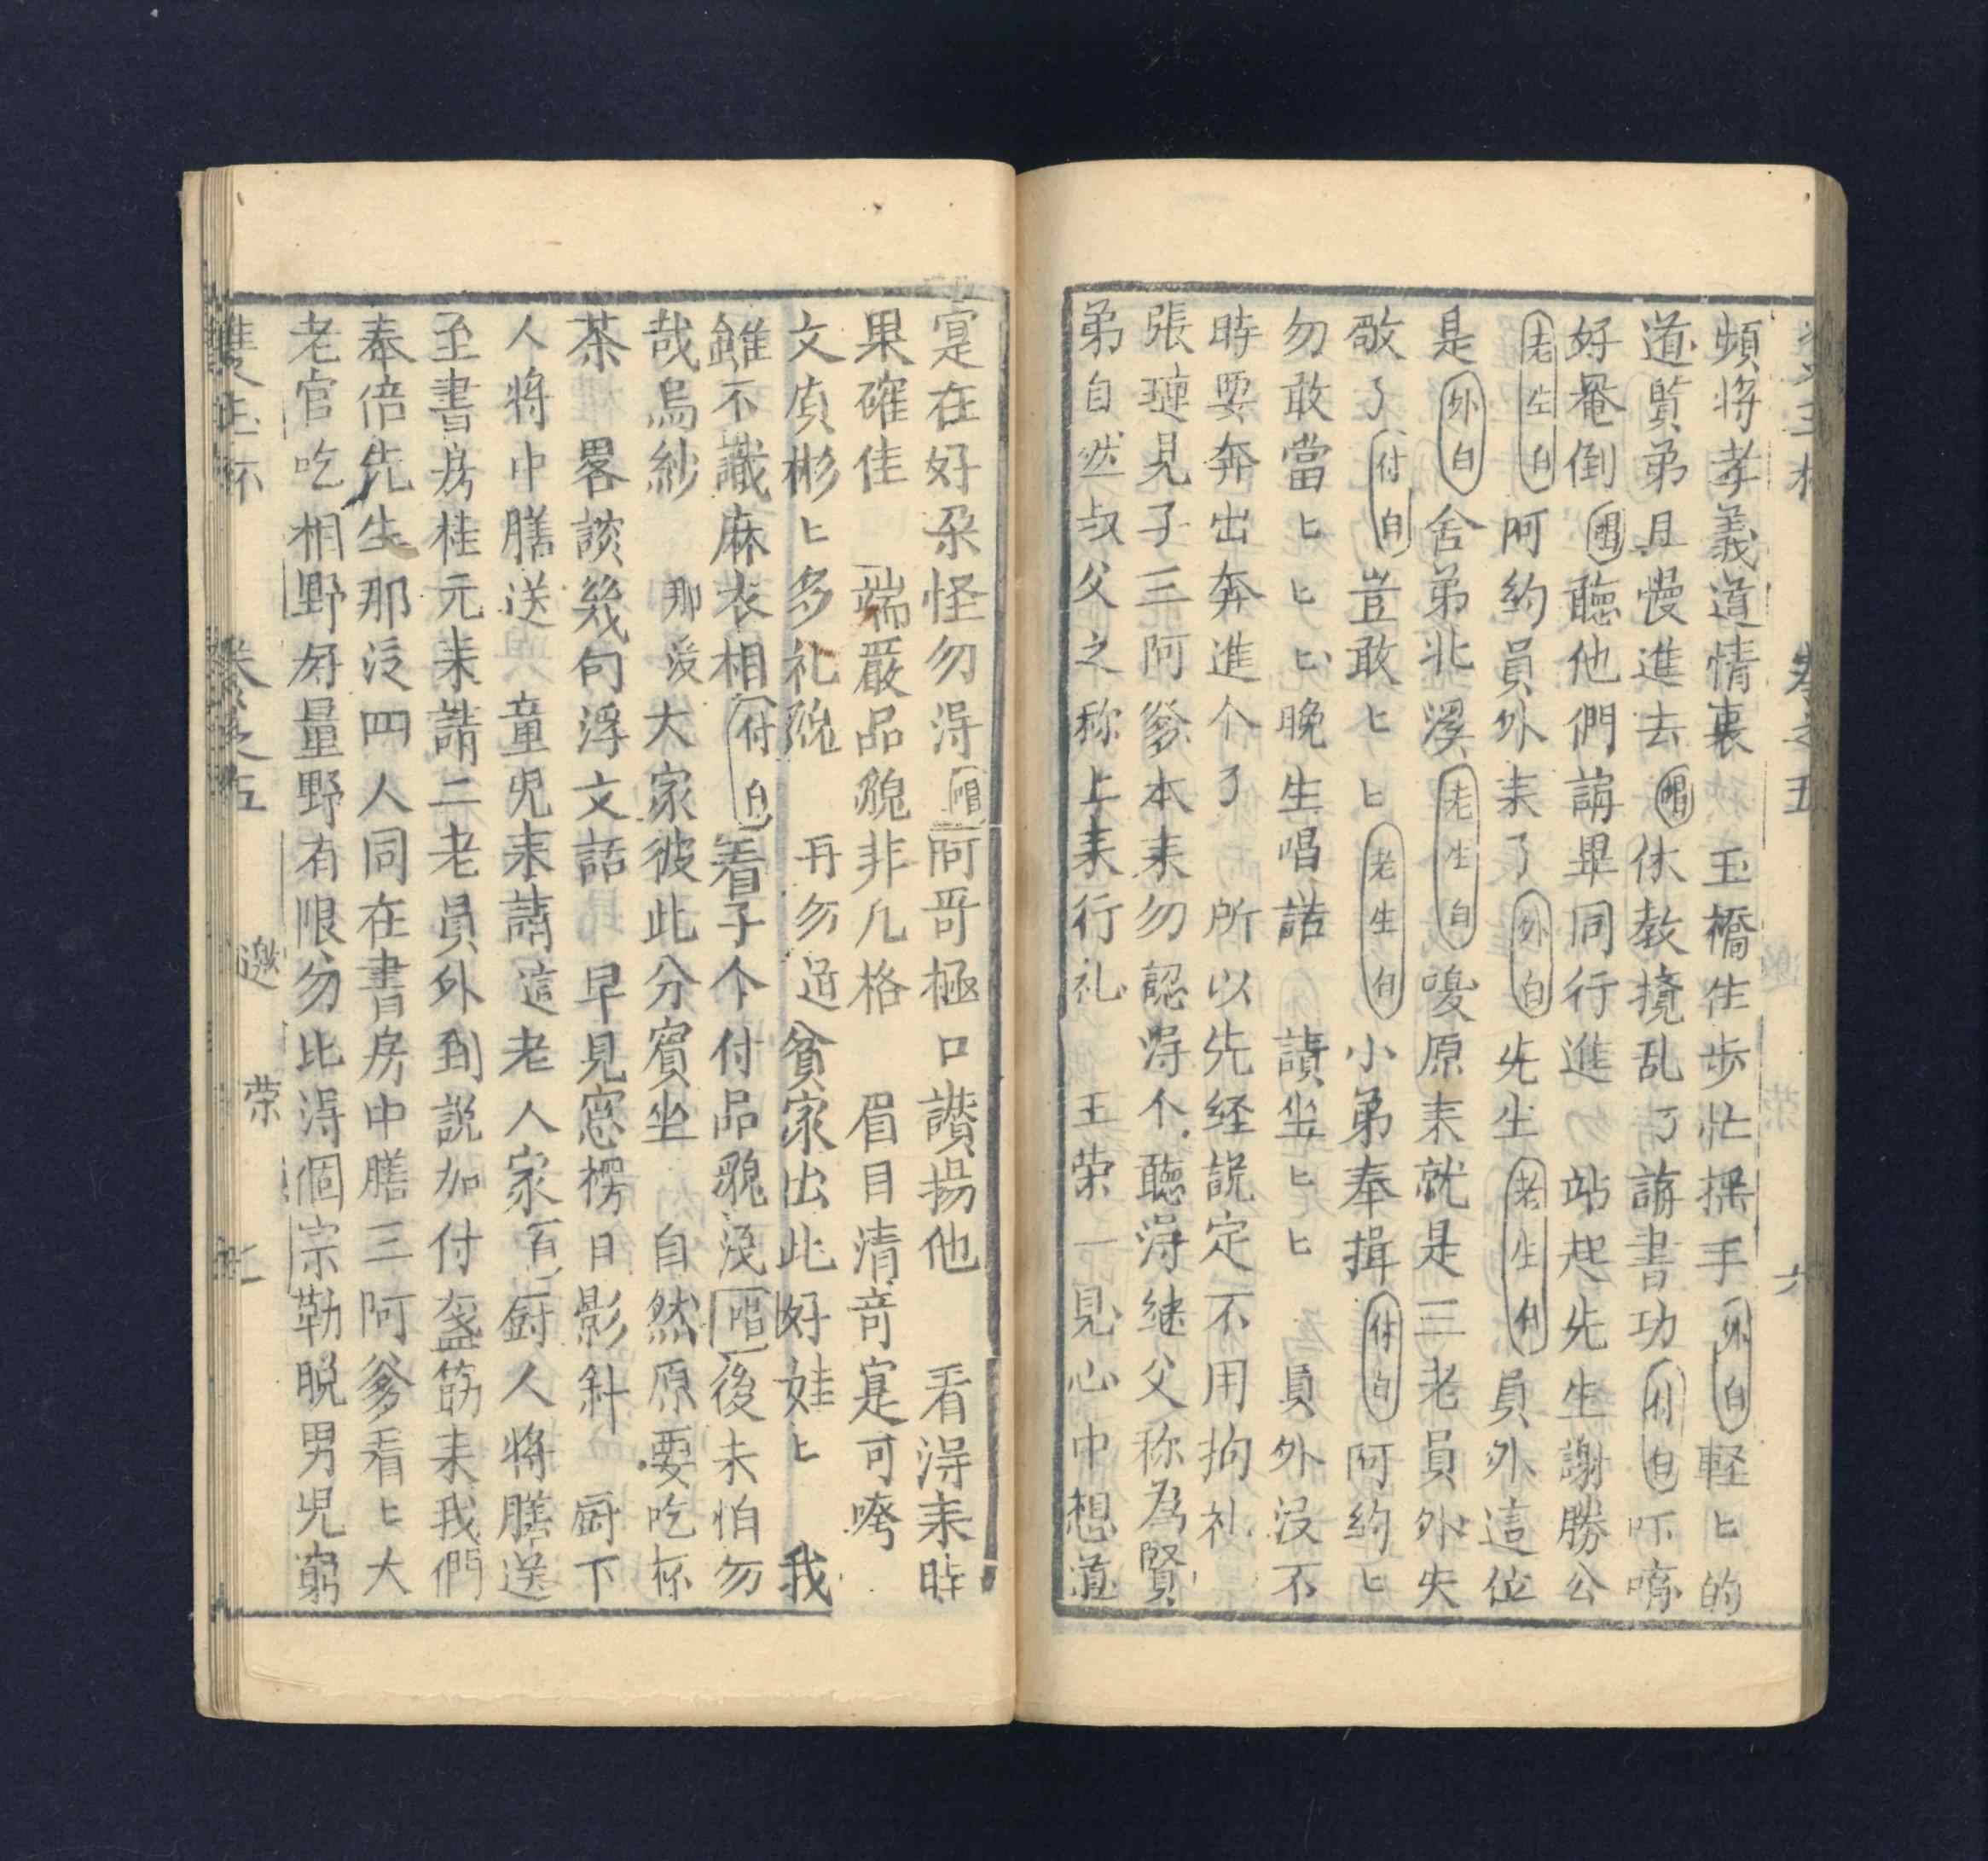 卷之五 六
頻將孝義道情裏 玉橋生步忙搖手 外白 輕匕的
道賢弟且慢進去 唱 休教攪乱了講書功 付白 吓唷
好奄倒 唱 聽他們講畢同行進 站起先生謝勝公
老生白 阿約員外來了 外白 先生 老生白 員外這位
是 外白 舍弟北溪 老生白 嗄原來就是三老員外失
敬了 付白 豈敢匕匕 老生白 小弟奉揖 付白 阿約匕
勿敢當匕匕匕晚生唱喏 請坐匕匕 員外沒不
時要奔出奔進个了 所以先経説定不用拘礼
張璉見子三阿爹本來勿認淂个聽淂継父称為賢
弟自然叔父之称上來行礼 王荣一見心中想道
寔在好朶怪勿淂 唱 阿哥極口讃揚他 看淂來時
果確佳 端嚴品貌非凢格 眉目清竒寔可誇
文貭彬匕多礼貌 再勿道貧家出此好娃匕 我
雖不識麻衣相 付白 看子个付品貌沒 唱 後未怕勿
哉烏紗 那沒大家彼此分賓坐 自然原要吃杯
茶 畧談幾句浮文話 早見窓楞日影斜 厨下
人將中膳送 童児來請這老人家 白 厨人將膳送
至書房桂元來請二老員外到説加付盞筯來我們
奉倍先生那沒四人同在書房中膳三阿爹看匕大
老官吃相野好量野有限勿比淂個宗勒脱男児窮
雙玉杯 卷之五 邀荣 七